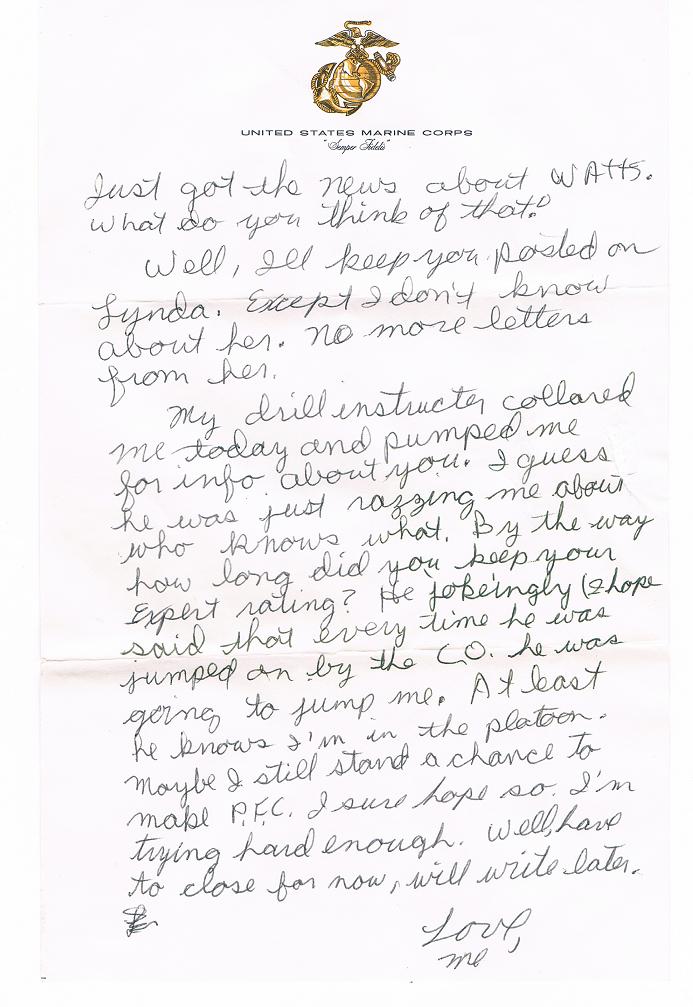 UNITED STATES MARINE CORPS
"Semper Fidelis"
Just got the news about WAttS.
What do you think of that?
Well, I'll keep you posted on
Lynda. Except I don't know
about her. No more letters
from her.
My drill instructer collared
me today and pumped me
for info about you. I guess
he was just razzing me about
who knows what. By the way
how long did you keep your
Expert rating? He jokeingly (I hope
said that every time he was
jumped on by the C.O. he was
going to jump me. At least
he knows I'm in the platoon.
Maybe I still stand a chance to
make P.F.C. I sure hope so. I'm
trying hard enough. Well, have
to close for now, will write later.
Love,
me